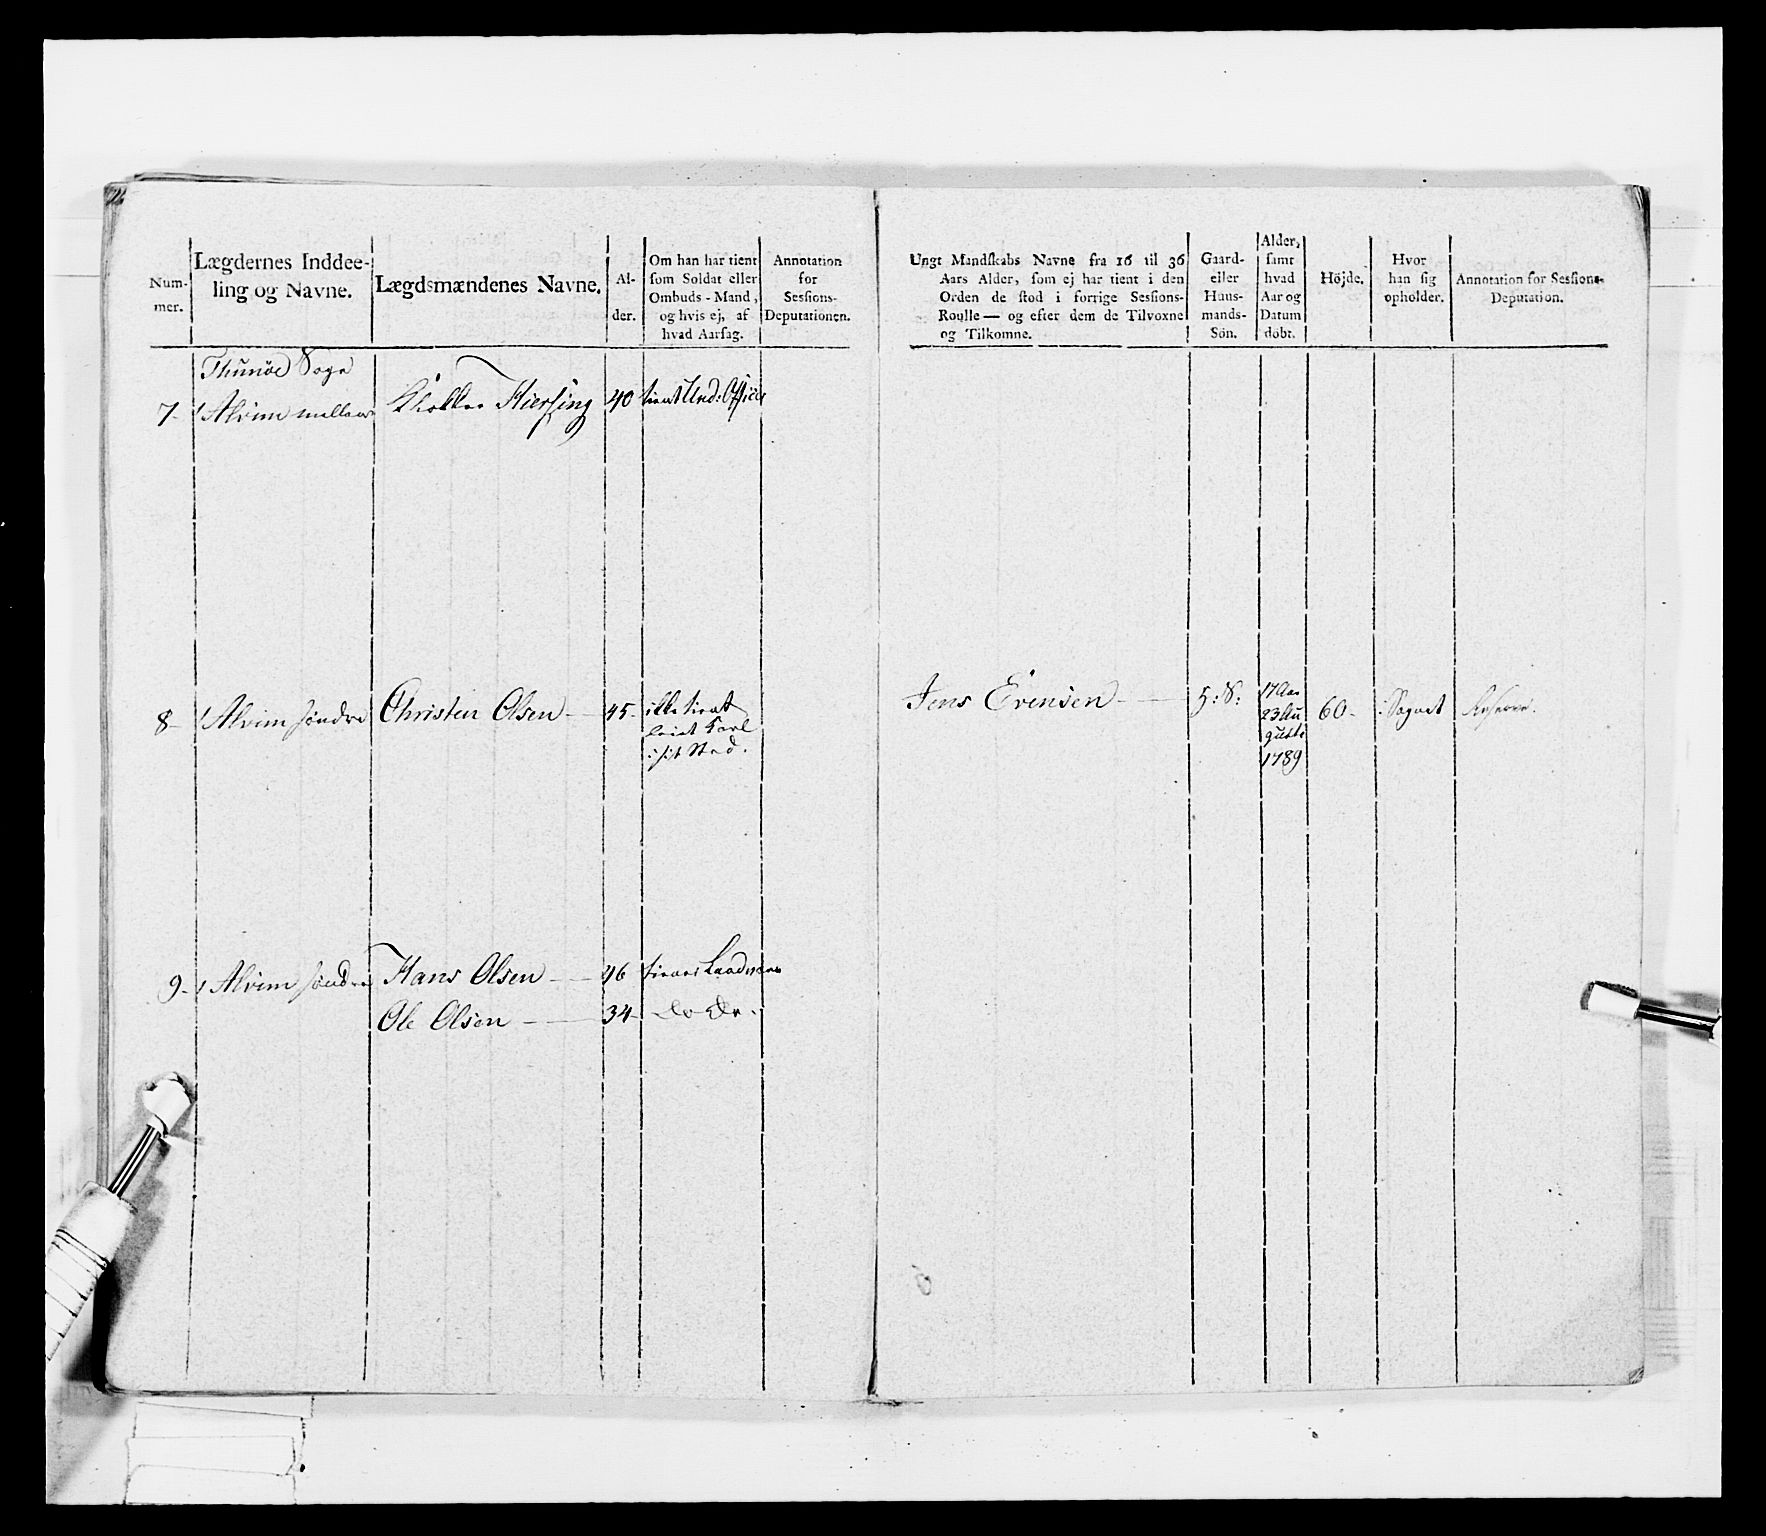 Num-
mer.
Lægdernes Inddee-
ling og Navne.
Lægdsmændenes Navne.
Al-
der.
Om han har tient
som Soldat eller
Ombuds-Mand,
og hvis ej, af
hvad Aarsag.
Annotation
for
Sessions-
Deputationen.
Thunöe Sogn
7- 1 Alvim mellem Kierfing 40 tient Und: Officer
8- 1 Alvim søndre Christen Olsen - 45- ikke tient
leiet Karl
i sit Sted.
9- 1 Alvim søndre Hans Olsen - 46
Ole Olsen - 34- do do.
Ungt Mandskabs Navne fra 16 til 36
Aars Alder, som ej har tient i den
Orden de stod i forrige Sessions-
Roulle — og efter dem de Tilvoxne
og Tilkomne.
Gaard-
eller
Huus-
mands-
Sön.
Alder,
samt
hvad
Aar og
Datum
döbt.
Höjde.
Hvor
han sig
opholder.
Annotation for Sessions-
Deputation.
Jens Evensen - 17 Aar 60- i Sognet Reserve.
23 Au
gusti
1789